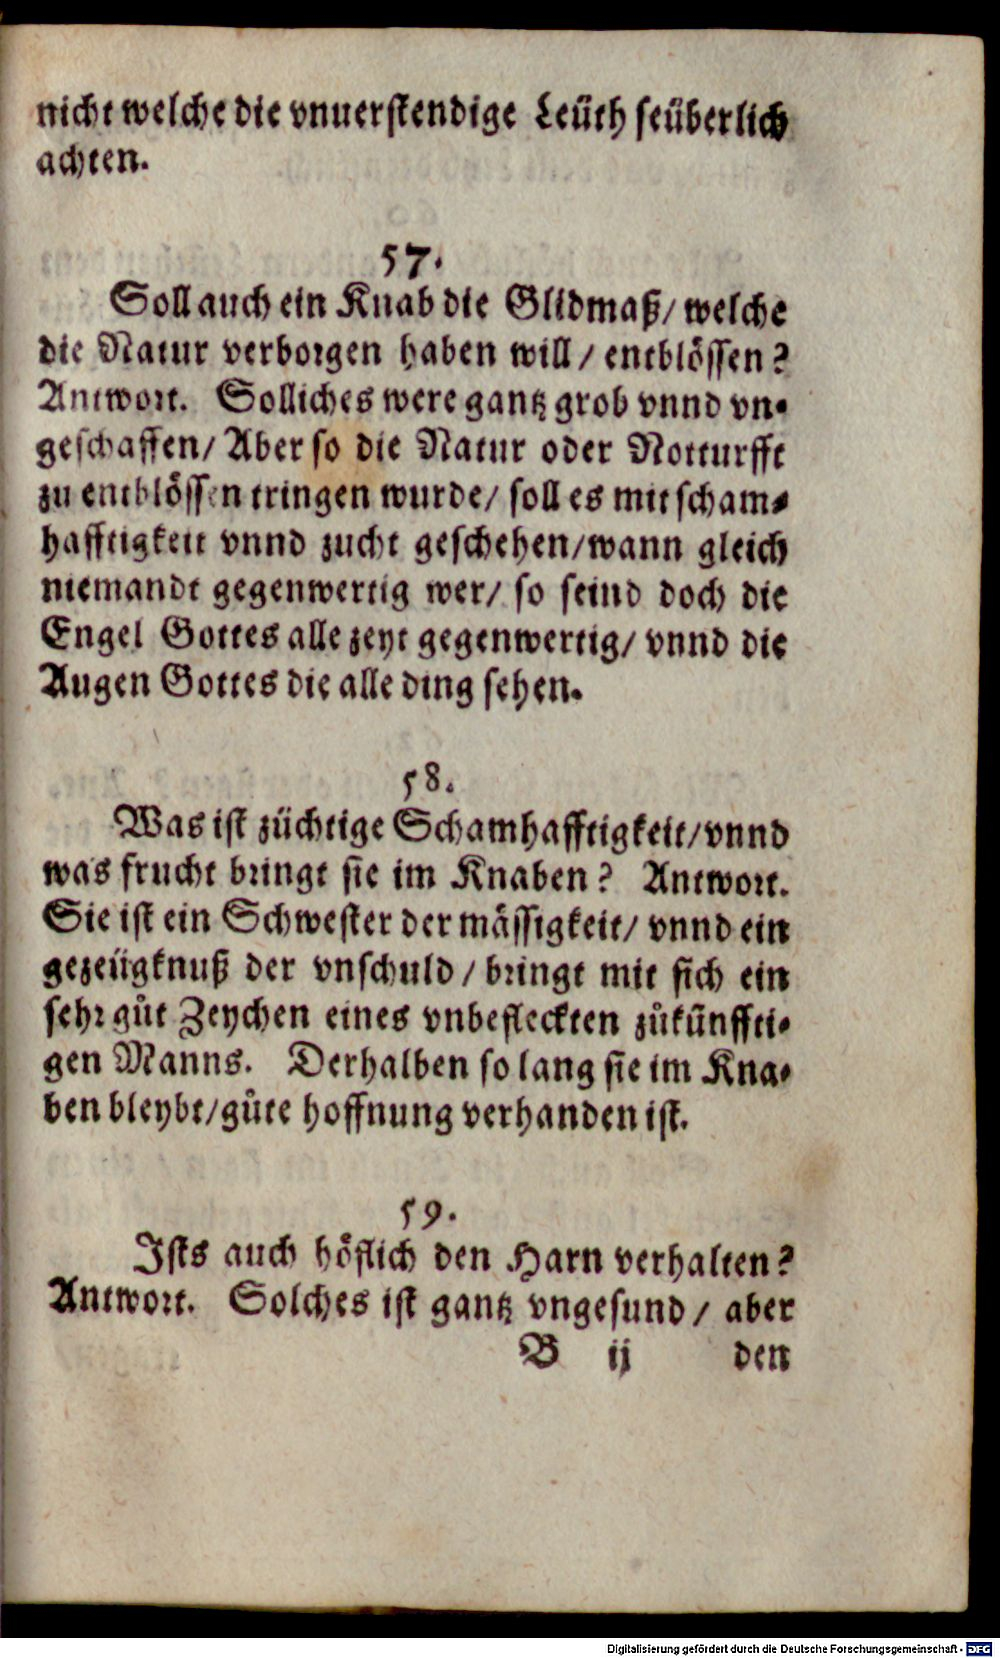 nicht welche die vnuerstendige Leüth seüberlich
achten.
57.
Soll auch ein Knab die Glidmaß/ welche
die Natur verborgen haben will/ entblössen?
Antwort. Solliches were gantz grob vnnd vn-
geschaffen/ Aber so die Natur oder Notturfft
zu entblössen tringen wurde/ soll es mit scham-
hafftigkeit vnnd zucht geschehen/wann gleich
niemandt gegenwertig wer/ so seind doch die
Engel Gottes alle zeyt gegenwertig/ vnnd die
Augen Gottes die alle ding sehen.
58.
Was ist züchtige Schamhafftigkeit/vnnd
was frucht bringt sie im Knaben? Antwort.
Sie ist ein Schwester der mässigkeit/ vnnd ein
gezeügknuß der vnschuld/ bringt mit sich ein
sehr gůt Zeychen eines vnbefleckten zůkünffti-
gen Manns. Derhalben so lang sie im Kna-
ben bleybt/gůte hoffnung verhanden ist.
59.
Ists auch höflich den Harn verhalten?
Antwort. Solches ist gantz vngesund/ aber
B ij den
Digitalisierung gefördert durch die Deutsche Forschungsgemeinschaft - DFG